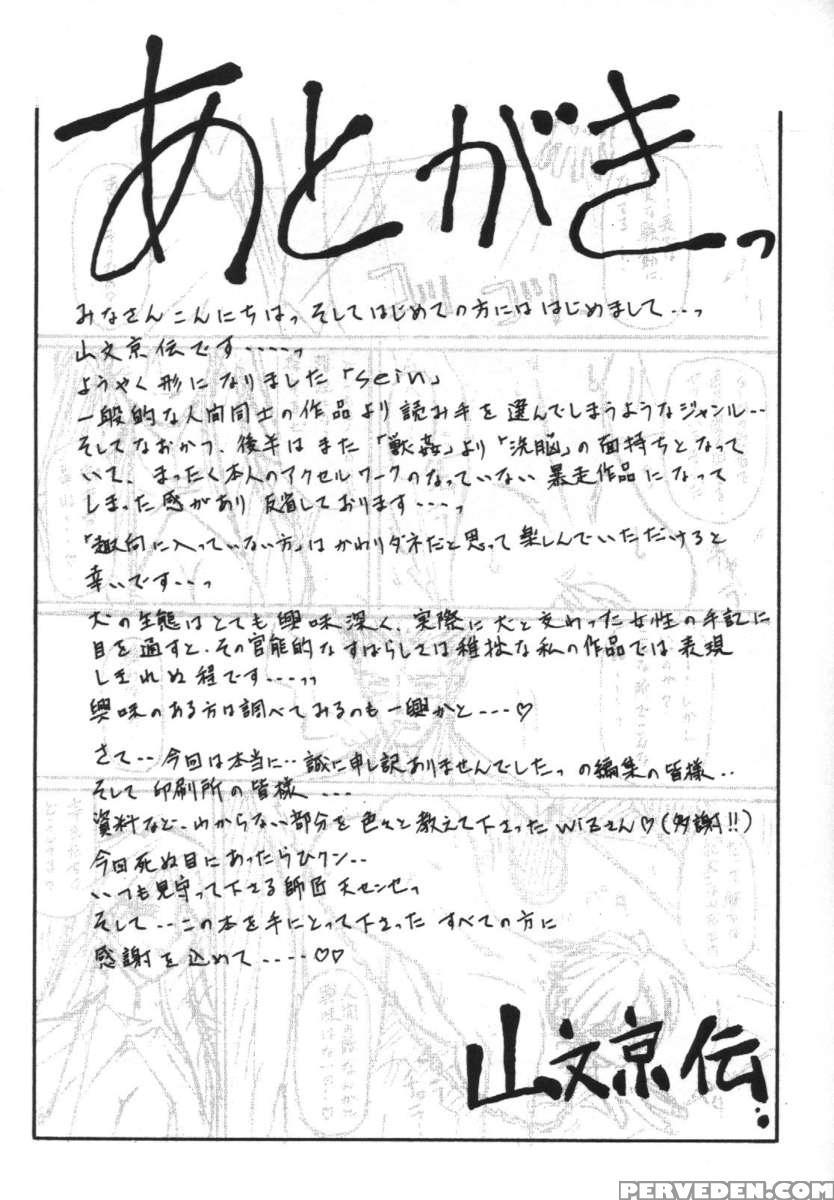 あとがきっ
みなさんこんにちはっ そしてはじめての方にははじめまして…っ
山文京伝です……っ
ようやく形になりました「sein」
一般的な人間同士の作品より読み手を選んでしまうようなジャンル…
そしてなおかつ、後半はまた「獣姦」より「洗脳」の面持ちとなって
いて、まったく本人のアクセルワークのなっていない暴走作品になって
しまった感があり 反省しております……っ
「趣向に入っていない方」はかわりダネだと思って楽しんでいただけると
幸いです…っ
犬の生態はとても興味深く、実際に犬と交わった女性の手記に
目を通すと、その官能的なすばらしさは稚拙な私の作品では表現
しきれぬ程です……っ
興味のある方は調べてみるのも一興かと……♡
さて…今回は本当に…誠に申し訳ありませんでしたっ の編集の皆様…
そして 印刷所の皆様……
資料など、わからない部分を色々と教えて下さった wizさん♡(多謝!!)
今回死ぬ目にあったらひクン…
いつも見守って下さる師匠 天センセっ
そして…この本を手にとって下さった すべての方に
感謝を込めて……♡♡
山文京伝
PERVEDEN.COM